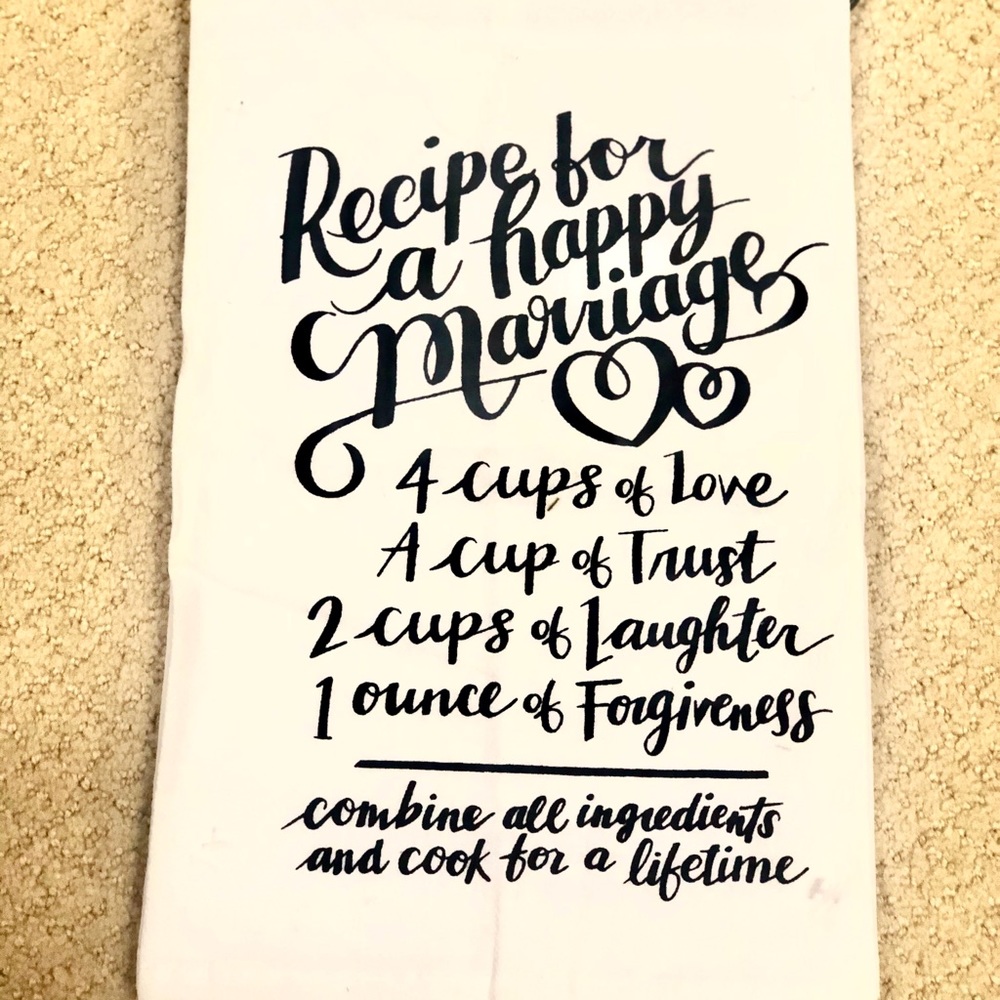 Recipe for
a happy
Marriage
4 cups of Love
A cup of Trust
2 cups of Laughter
1 ounce of Forgiveness
combine all ingredients
and cook for a lifetime